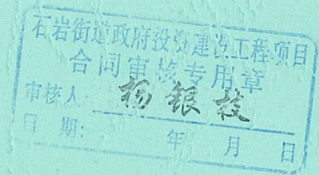 石岩街道政府投资建设工程项目
合同审核专用章
审核人：杨银枝
日期： 年 月 日